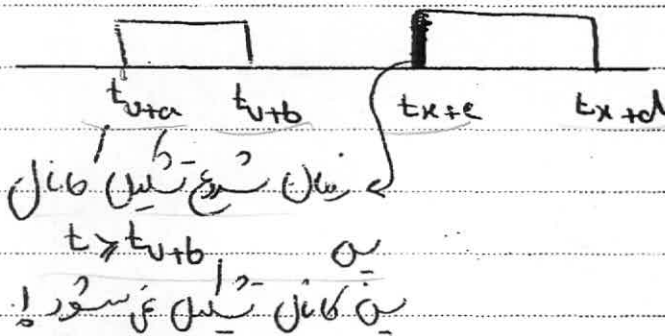 t_{v+a} t_{v+b} t_{x+c} t_{x+d}
زمان شروع تشکیل کانال
t ≥ t_{v+b}
پس
پس کانال تشکیل می شود!